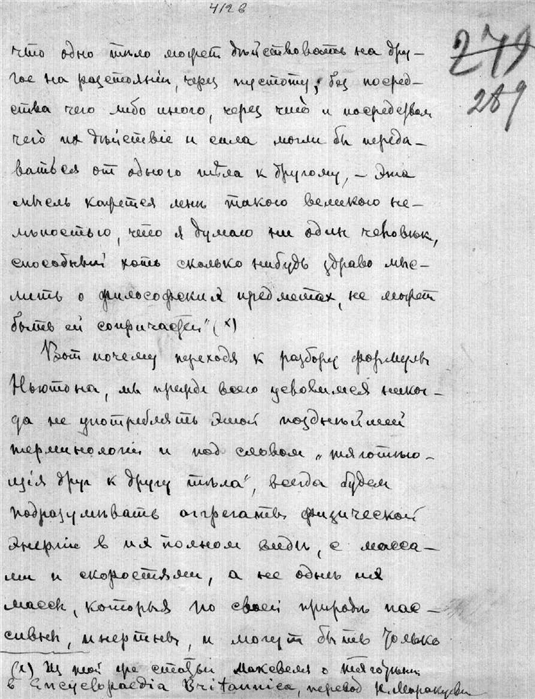 412 в
279
289
что одно тѣло можетъ дѣйствовать на дру-
гое на разстояніи, черезъ пустоту, безъ посред-
ства чего либо иного, через что и посредством
чего их дѣйствіе и сила могли бы переда-
ваться от одного тѣла к другому, — эта
мысль кажется мнѣ такого великою не-
лѣпостью, что я думаю ни один человѣк,
способный хоть сколько нибудь здраво мыс-
лить о философских предметах, не может
быть ей сопричастен" (х)
Вот почему переходя к разбору формулы
Ньютона, мы прежде всего условимся никог-
да не употреблять этой позднѣйшей
терминологіи и под словом „тяготѣю-
щія друг к другу тѣла", всегда будем
подразумѣвать аггрегаты физической
энергіи в ея полном видѣ, с масса-
ми и скоростями, а не однѣ ея
массы, которыя по своей природѣ пас-
сивны, инертны, и могут быть только
(х) Из той же статьи Максвеля о тяготѣніи
в Encyclopaedia Britannica, перевод Н. Маракуева